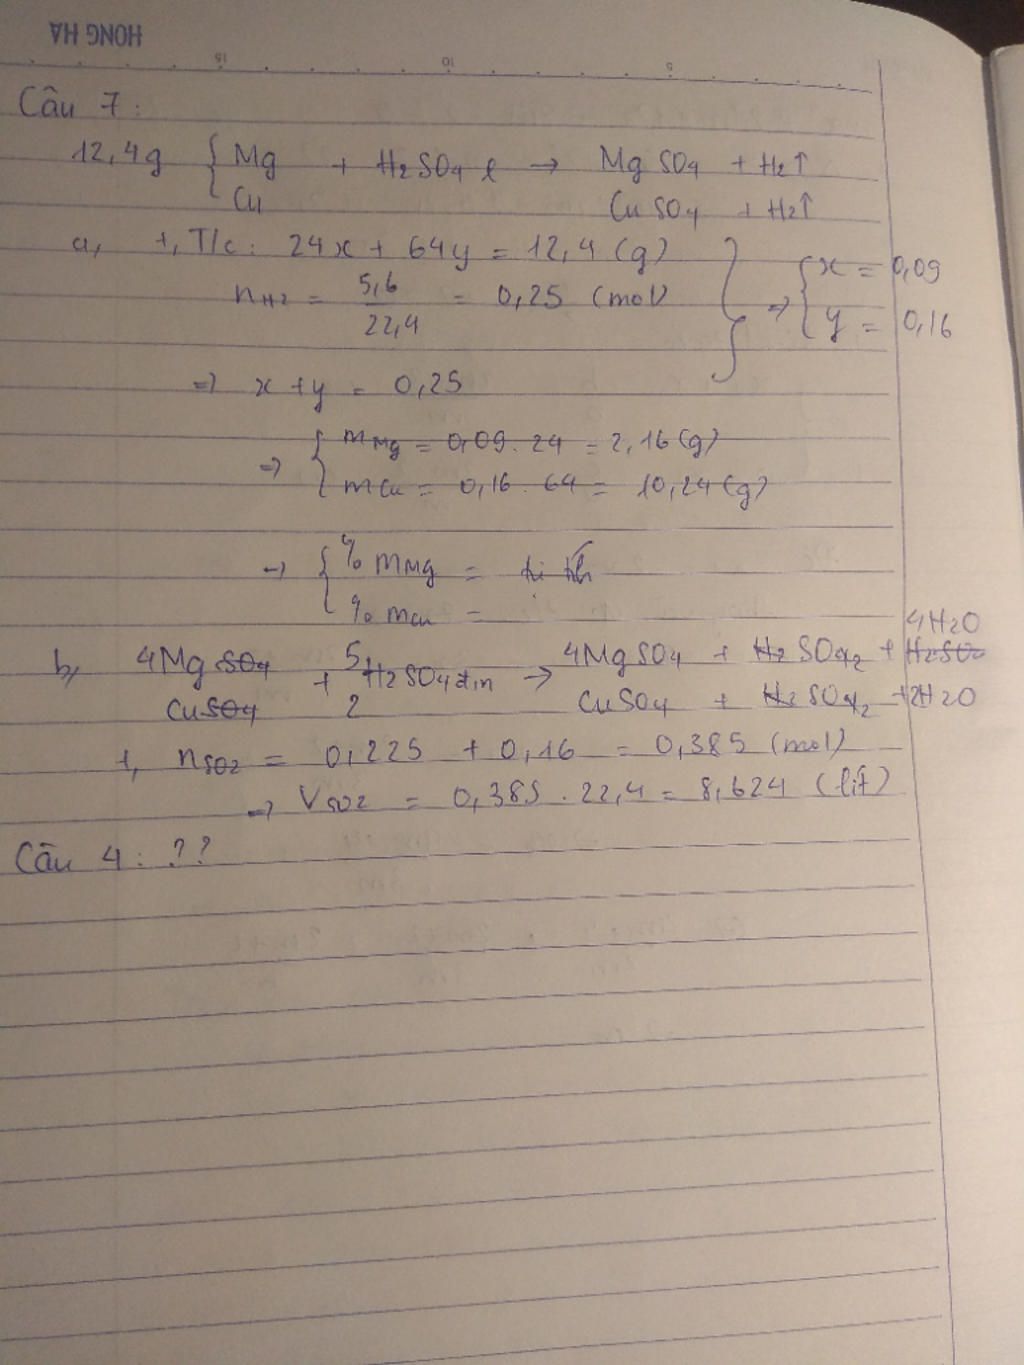 HONG HA
15 10 5
Câu 7:
12,4g { Mg + H2SO4 l → MgSO4 + H2↑
Cu CuSO4 + H2↑
a, +, T/c: 24x + 64y = 12,4 (g)
nH2 = 5,6/22,4 = 0,25 (mol)
=> { x = 0,09
y = 0,16
=> x + y = 0,25
=> { mMg = 0,09 . 24 = 2,16 (g)
mCu = 0,16 . 64 = 10,24 (g)
→ { % mMg =
% mCu =
b, 4MgSO4 + 5H2SO4 → 4MgSO4 + H2SO42 + H2SO 4H2O
CuSO4 2 CuSO4 + H2SO42 + 2H2O
+, nSO2 = 0,225 + 0,16 = 0,385 (mol)
=> VSO2 = 0,385 . 22,4 = 8,624 (lít)
Câu 4: ??